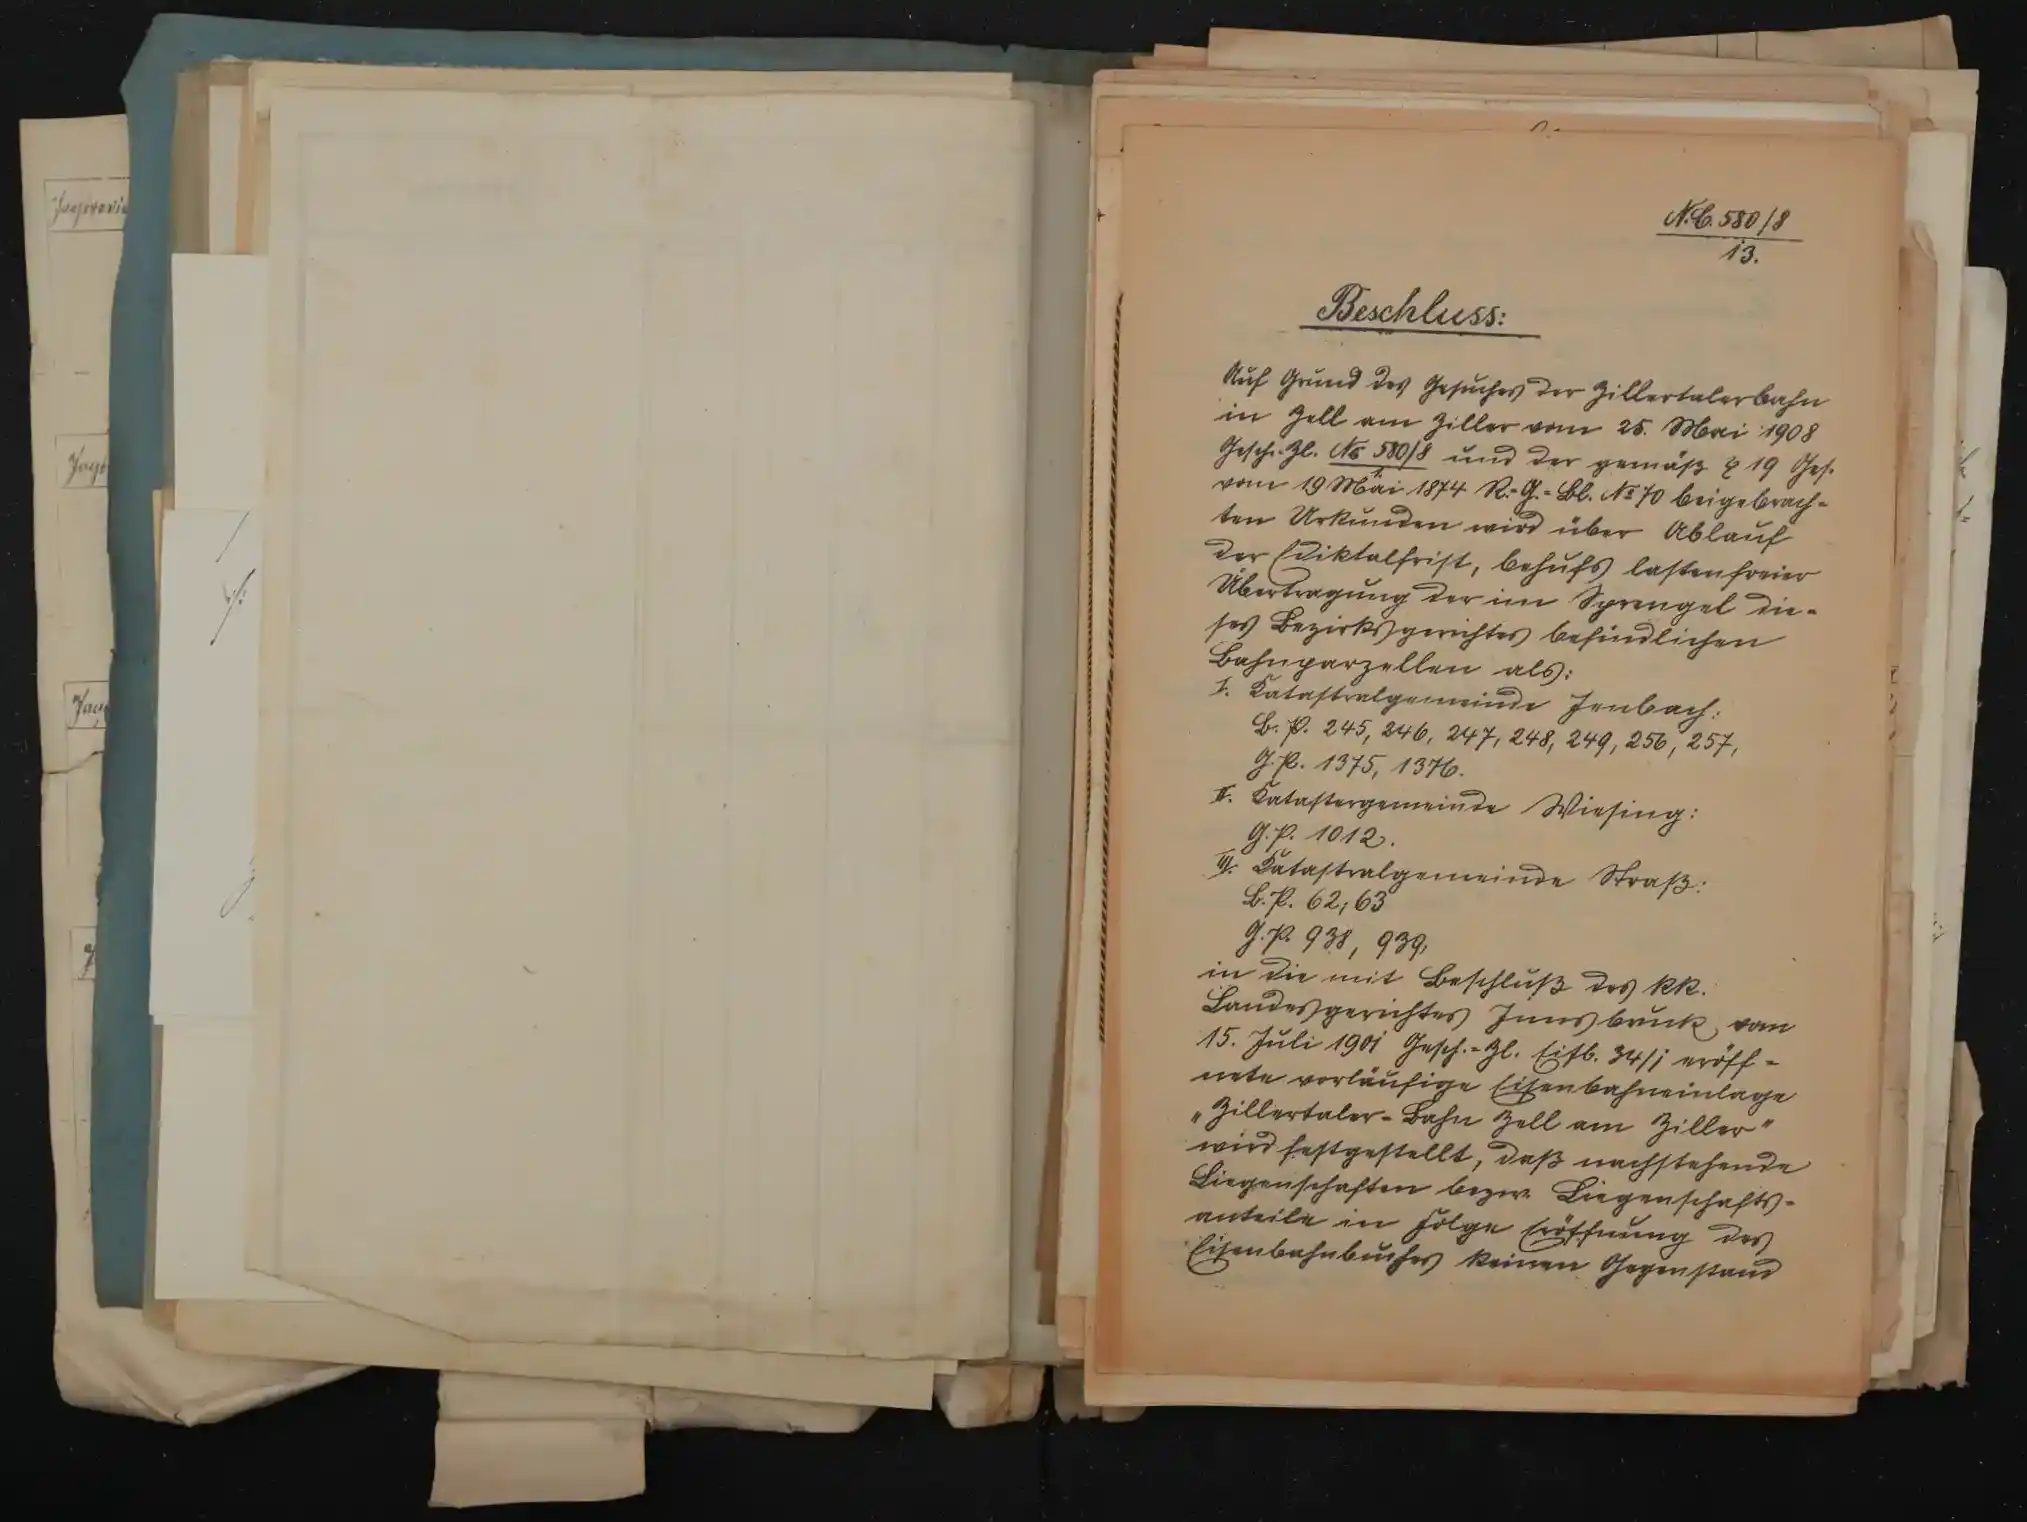 N.C. 580/8
13.
Beschluss:
Auf Grund des Gesuches der Zillertalerbahn
in Zell am Ziller vom 25. Mai 1908
Gesch.-Zl. Nc 580/8 und der gemäß § 19 Ges.
vom 19 Mai 1874 R.-G.-Bl. No 70 beigebrach-
ten Urkunden wird über Ablauf
der Ediktalfrist, behufs lastenfreier
Übertragung der im Sprengel die-
ses Bezirksgerichtes befindlichen
Bahnparzellen als:
I. Katastralgemeinde Jenbach:
B. P. 245, 246, 247, 248, 249, 256, 257,
G. P. 1375, 1376.
II. Katastergemeinde Wiesing:
G. P. 1012.
III. Katastralgemeinde Straß:
B. P. 62, 63
G. P. 938, 939,
in die mit Beschluß des kk.
Landesgerichtes Innsbruck vom
15. Juli 1901 Gesch.-Zl. Eisb. 34/1 eröff-
nete vorläufige Eisenbahneinlage
„Zillertaler-Bahn Zell am Ziller"
wird festgestellt, daß nachstehende
Liegenschaften bezw. Liegenschafts-
anteile in Folge Eröffnung des
Eisenbahnbuches keinen Gegenstand